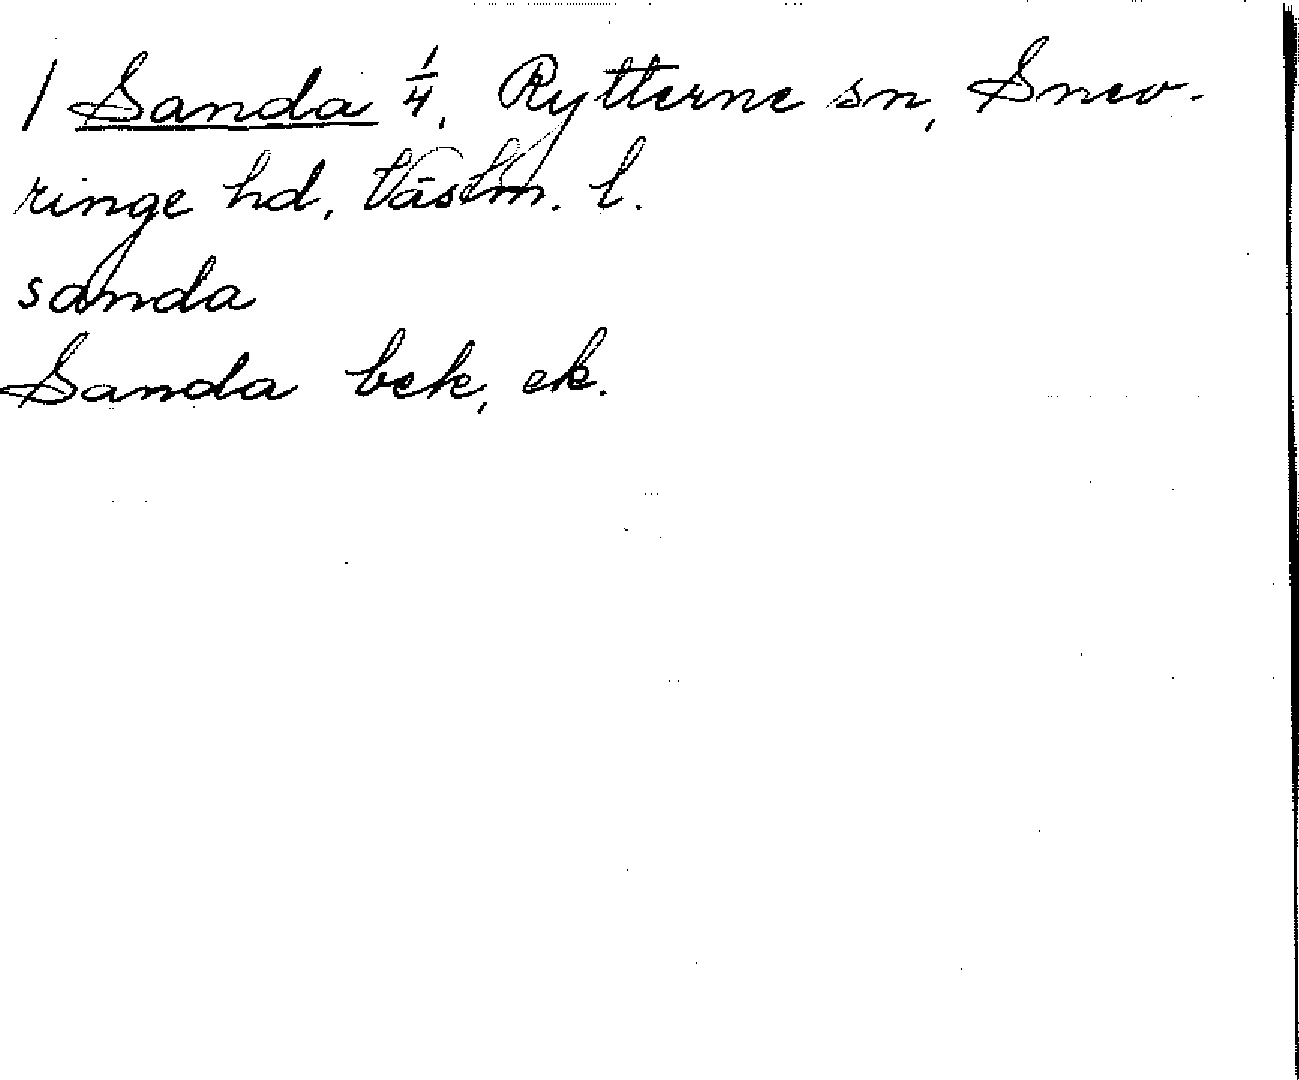 / Sanda 1/4, Rytterne sn, Snev-
ringe hd, Västm. l.
sanda
Sanda bek, ek.